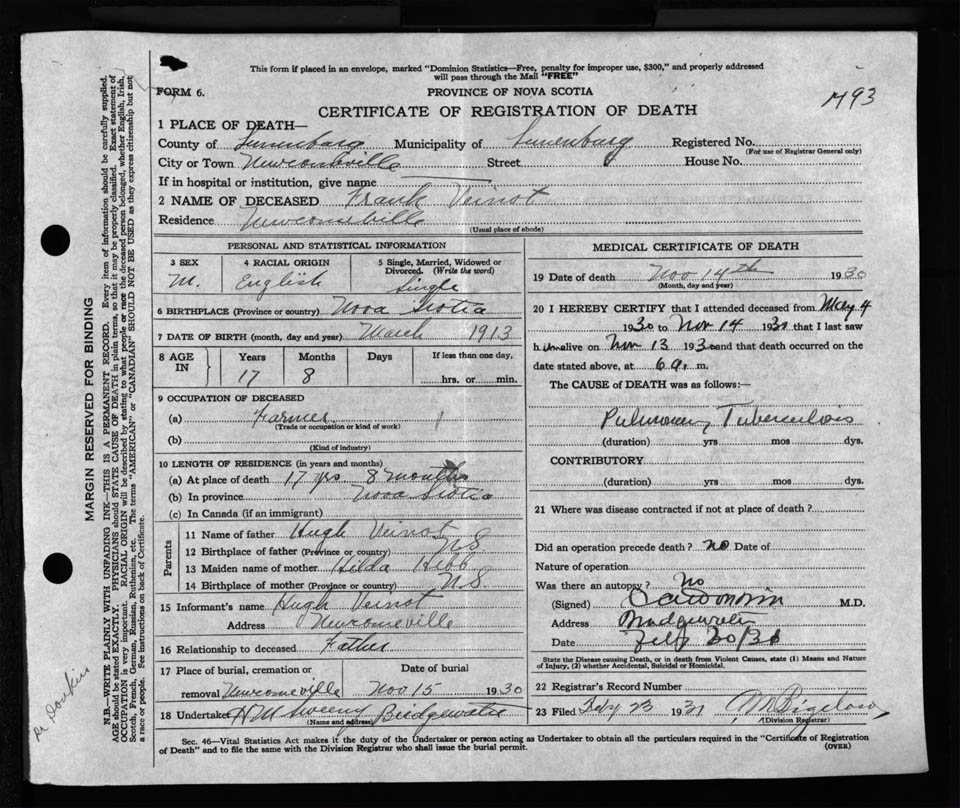 This form if placed in an envelope, marked "Dominion Statistics—Free, penalty for improper use, $300," and properly addressed
will pass through the Mail "FREE"
FORM 6.
PROVINCE OF NOVA SCOTIA
1493
CERTIFICATE OF REGISTRATION OF DEATH
1 PLACE OF DEATH—
County of Lunenburg Municipality of Lunenburg Registered No.
(For use of Registrar General only)
City or Town Newcombville Street House No.
If in hospital or institution, give name
2 NAME OF DECEASED Frank Veinot
Residence Newcomeville
(Usual place of abode)
PERSONAL AND STATISTICAL INFORMATION
3 SEX 4 RACIAL ORIGIN 5 Single, Married, Widowed or Divorced. (Write the word)
M. English Single
6 BIRTHPLACE (Province or country) Nova Scotia
7 DATE OF BIRTH (month, day and year) March 1913
8 AGE IN Years Months Days If less than one day,
17 8 hrs. or min.
9 OCCUPATION OF DECEASED
(a) Farmer
(Trade or occupation or kind of work)
(b)
(Kind of industry)
10 LENGTH OF RESIDENCE (in years and months)
(a) At place of death 17 yrs 8 months
(b) In province Nova Scotia
(c) In Canada (if an immigrant)
Parents
11 Name of father Hugh Veinot
12 Birthplace of father (Province or country) N.S
13 Maiden name of mother Hilda Hebb
14 Birthplace of mother (Province or country) N.S
15 Informant's name Hugh Veinot
Address Newcomeville
16 Relationship to deceased Father
17 Place of burial, cremation or Date of burial
removal Newcomeville Nov 15 1930
18 Undertaker H M Sweeny Bridgewater
(Name and address)
MEDICAL CERTIFICATE OF DEATH
19 Date of death Nov 14th 1930
(Month, day and year)
20 I HEREBY CERTIFY that I attended deceased from May 4
1930 to Nov 14 193 that I last saw
h im alive on Nov 13 1930 and that death occurred on the
date stated above, at 6 a. m.
The CAUSE of DEATH was as follows:—
Pulmonary Tuberculosis
(duration) yrs mos dys.
CONTRIBUTORY
(duration) yrs mos dys.
21 Where was disease contracted if not at place of death?
Did an operation precede death? no Date of
Nature of operation
Was there an autopsy? No
(Signed) M.D.
Address Bridgewater
Date
State the Disease causing Death, or in death from Violent Causes, state (1) Means and Nature of Injury, (2) whether Accidental, Suicidal or Homicidal.
22 Registrar's Record Number
23 Filed 23 1931 Bigelow
(Division Registrar)
Sec. 46—Vital Statistics Act makes it the duty of the Undertaker or person acting as Undertaker to obtain all the particulars required in the "Certificate of Registration
of Death" and to file the same with the Division Registrar who shall issue the burial permit.
(OVER)
MARGIN RESERVED FOR BINDING
N.B.—WRITE PLAINLY WITH UNFADING INK—THIS IS A PERMANENT RECORD. Every item of information should be carefully supplied.
AGE should be stated EXACTLY. PHYSICIANS should STATE CAUSE OF DEATH in plain terms, so that it may be properly classified. Exact statement of
OCCUPATION is very important. RACIAL ORIGIN will be described by stating to what people or race the deceased person belonged, whether English, Irish,
Scotch, French, German, Russian, Ruthenian, etc. The terms "AMERICAN" or "CANADIAN" SHOULD NOT BE USED as they express citizenship but not
a race or people. See instructions on back of Certificate.